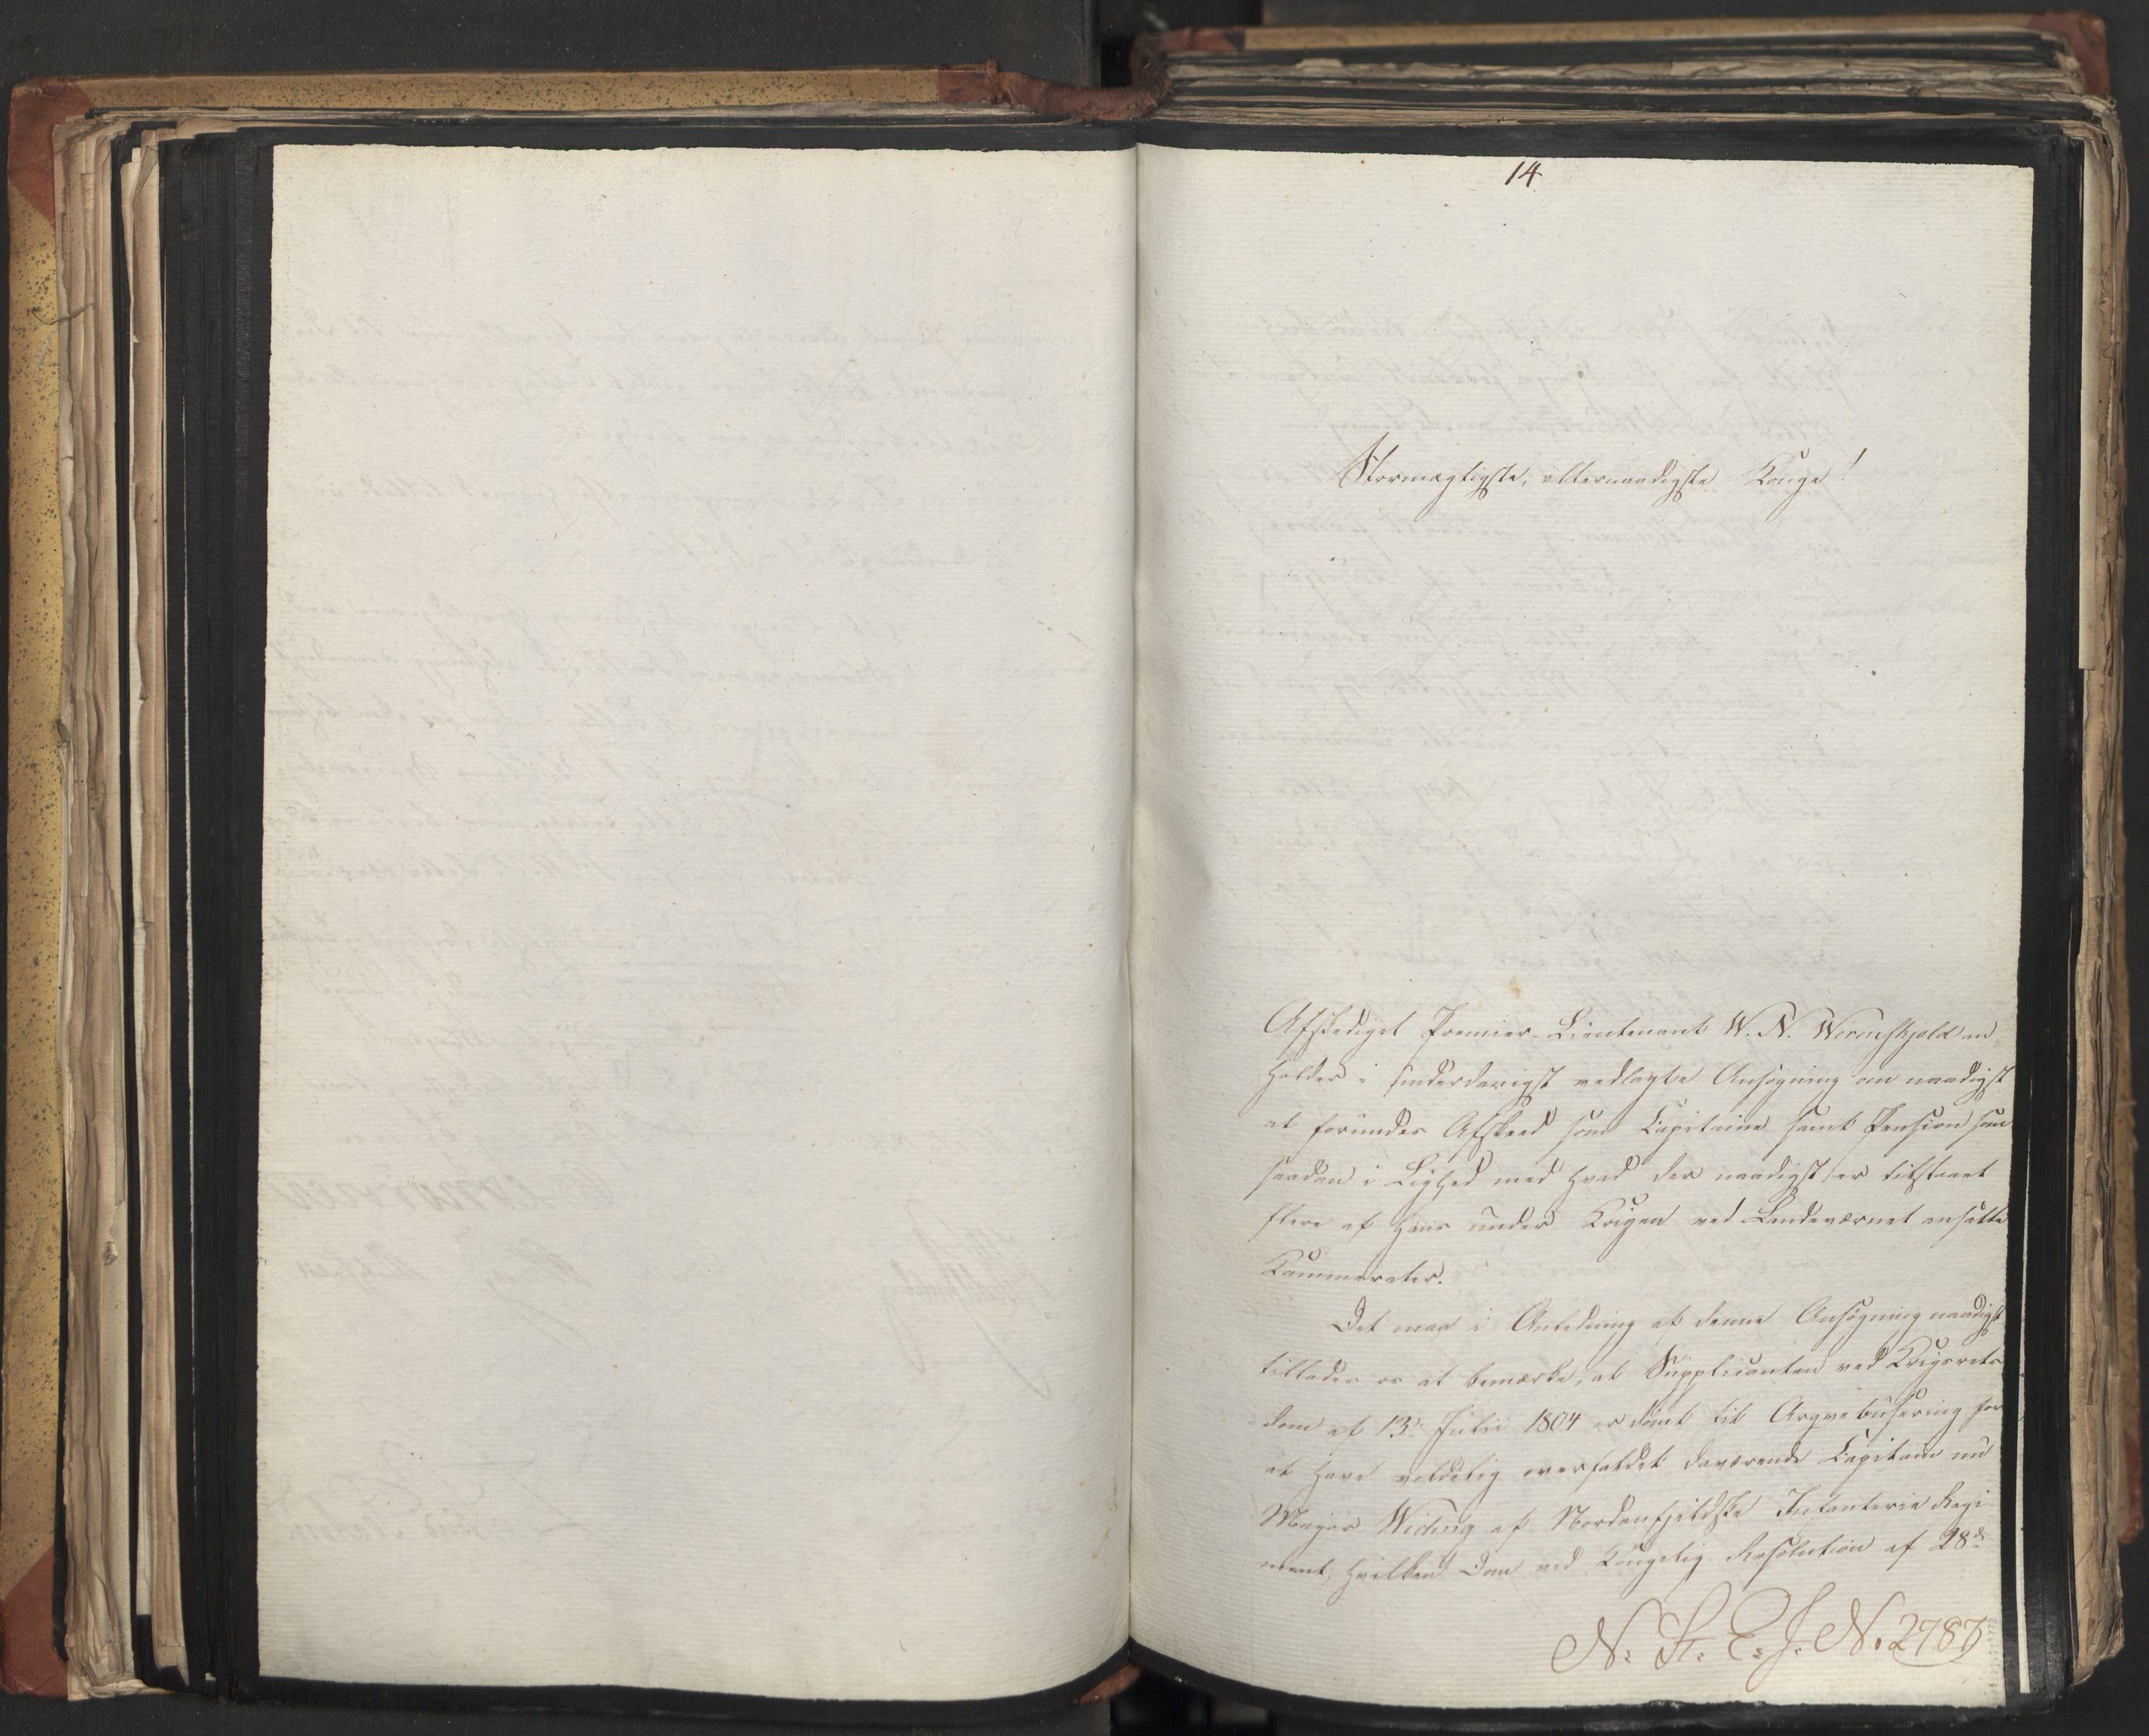 14
Stormægtigste, allernaadigste Konge!
Afskediget Premier-Lieutenant W. N. Wormskjold an
holder i underdanigst vedlagte Ansøgning om naadigst
at forundes Afskeed som Capitaine samt Pension som
saadan i Lighed med hvad der naadigst er tilstaaet
flere af hans under Krigen ved Landeværnet ansatte
Kammerater.
Det maa i Anledning af denne Ansøgning naadigst
tillades os at bemærke, at Supplicanten ved Krigsrets
dom af 13de Julii 1804 er dømt til Arqvebusering for
at have voldelig overfaldet daværende Capitain nu
Major Wiching af Nordenfjeldske Infanterie Regi
ment, hvilken Dom ved Kongelig Resolution af 28de
N: St: E: J. No. 2787